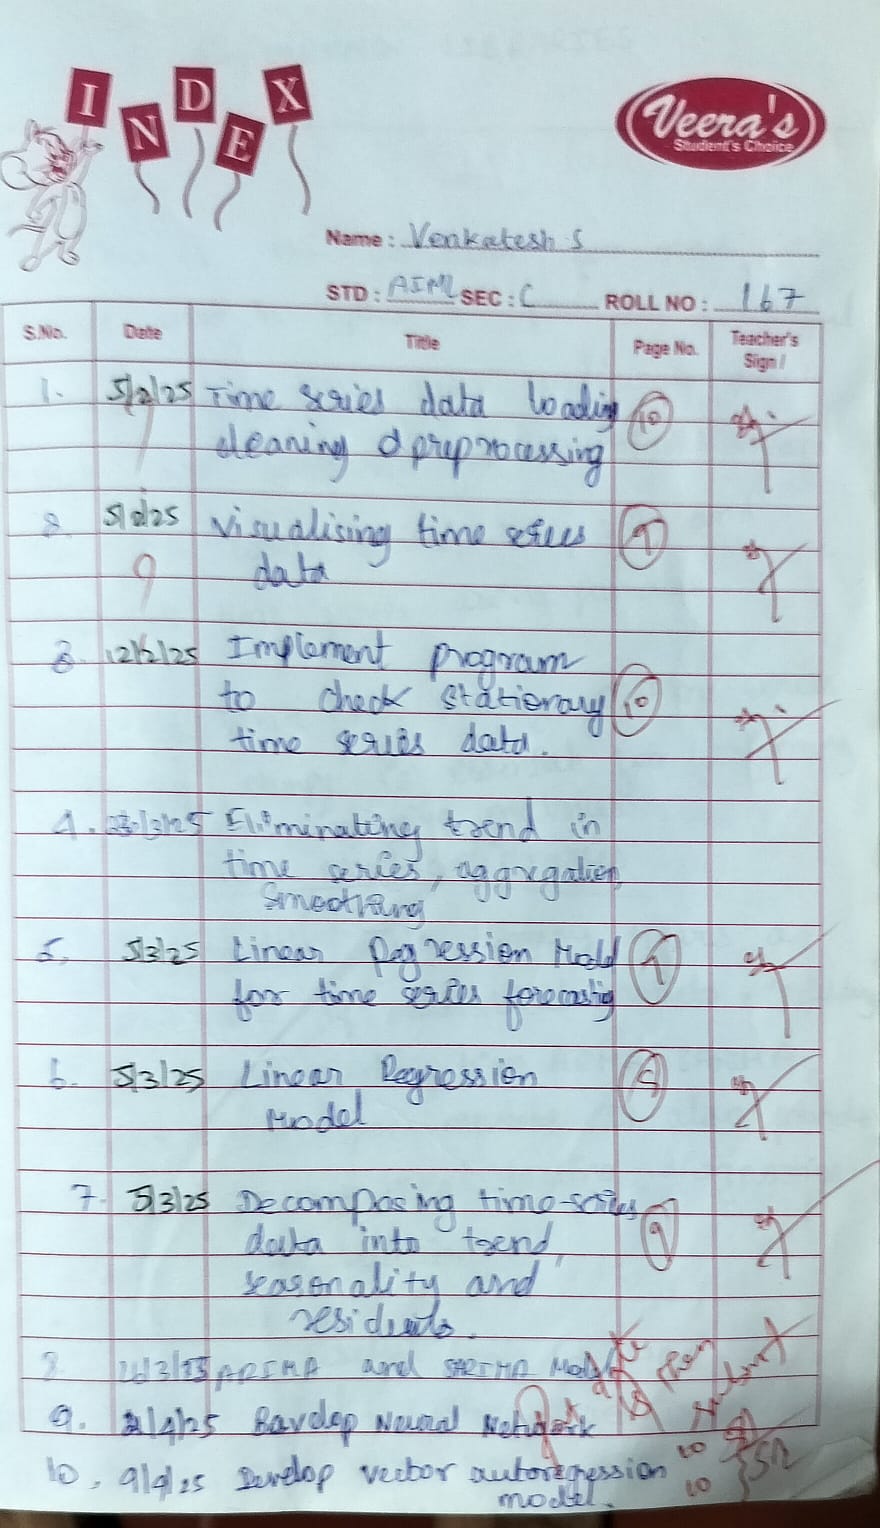 INDEX
Veera's
Student's Choice
Name : Venkatesh S
STD : AIML SEC : C ROLL NO : 167
S.No. Date Title Page No. Teacher's Sign/
1. 5/2/25 Time series data loading 10
cleaning & preprocessing
2. 5/2/25 Visualising time series
9 data
3. 12/2/25 Implement program
to check stationary 10
time series data.
4. /3/25 Eliminating trend in
time series, aggregation,
Smoothing
5. 5/3/25 Linear Regression Model
for time series forecastig
6. 5/3/25 Linear Regression
Model
7. 5/3/25 Decomposing time-series
data into trend, 9
seasonality and
residuals.
8. ARIMA and SARIMA Model
9. /4/25 Neural Network 10
10, 9/4/25 Develop vector autoregression 10
model.